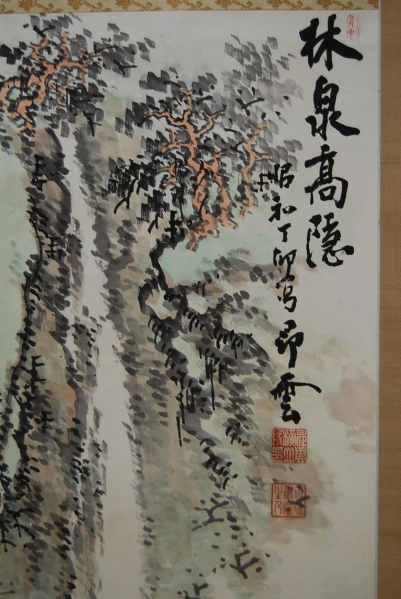 林泉高隠
昭和丁卯写 昂雲